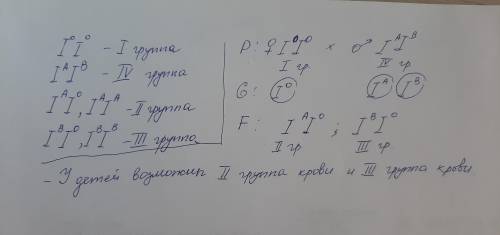 I⁰I⁰ – I группа
IᴬIᴮ – IV группа
IᴬI⁰, IᴬIᴬ – II группа
IᴮI⁰, IᴮIᴮ – III группа
P: ♀ I⁰I⁰ × ♂ IᴬIᴮ
I гр. IV гр.
G: I⁰ Iᴬ Iᴮ
F: IᴬI⁰ ; IᴮI⁰
II гр. III гр.
– У детей возможны II группа крови и III группа крови